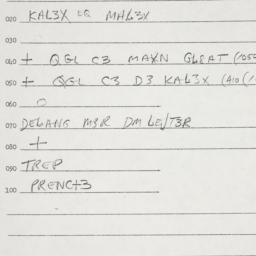 020 KAL3X EQ MAL3X
030
040 + QGL C3 MAXN GLSAT (1050
050 + QGL C3 D3 KAL3X (A10 (1
060 O
070 DELANG M3R DM LE/T3R
080 +
090 TREP
100 PRENC+3